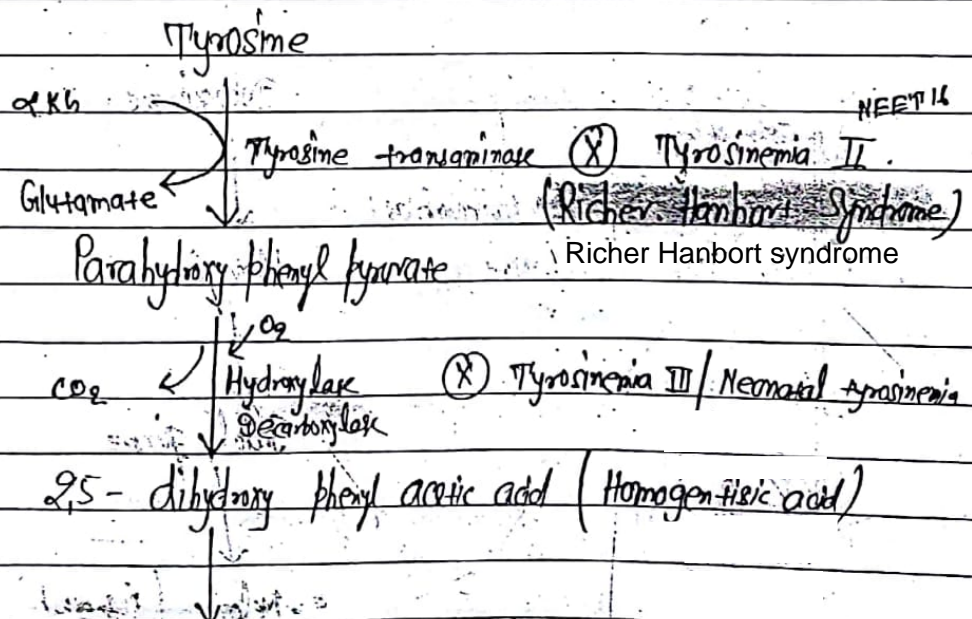 Tyrosine
αKG
NEET 16
Tyrosine transaminase Ⓧ Tyrosinemia II.
Glutamate
(Richer. Hanbort Syndrome)
Richer Hanbort syndrome
Parahydroxy phenyl pyruvate
O2
CO2
Hydroxylase Ⓧ Tyrosinemia III/ Neonatal tyrosinemia
Decarboxylase
2,5- dihydroxy phenyl acetic acid (Homogentisic acid)